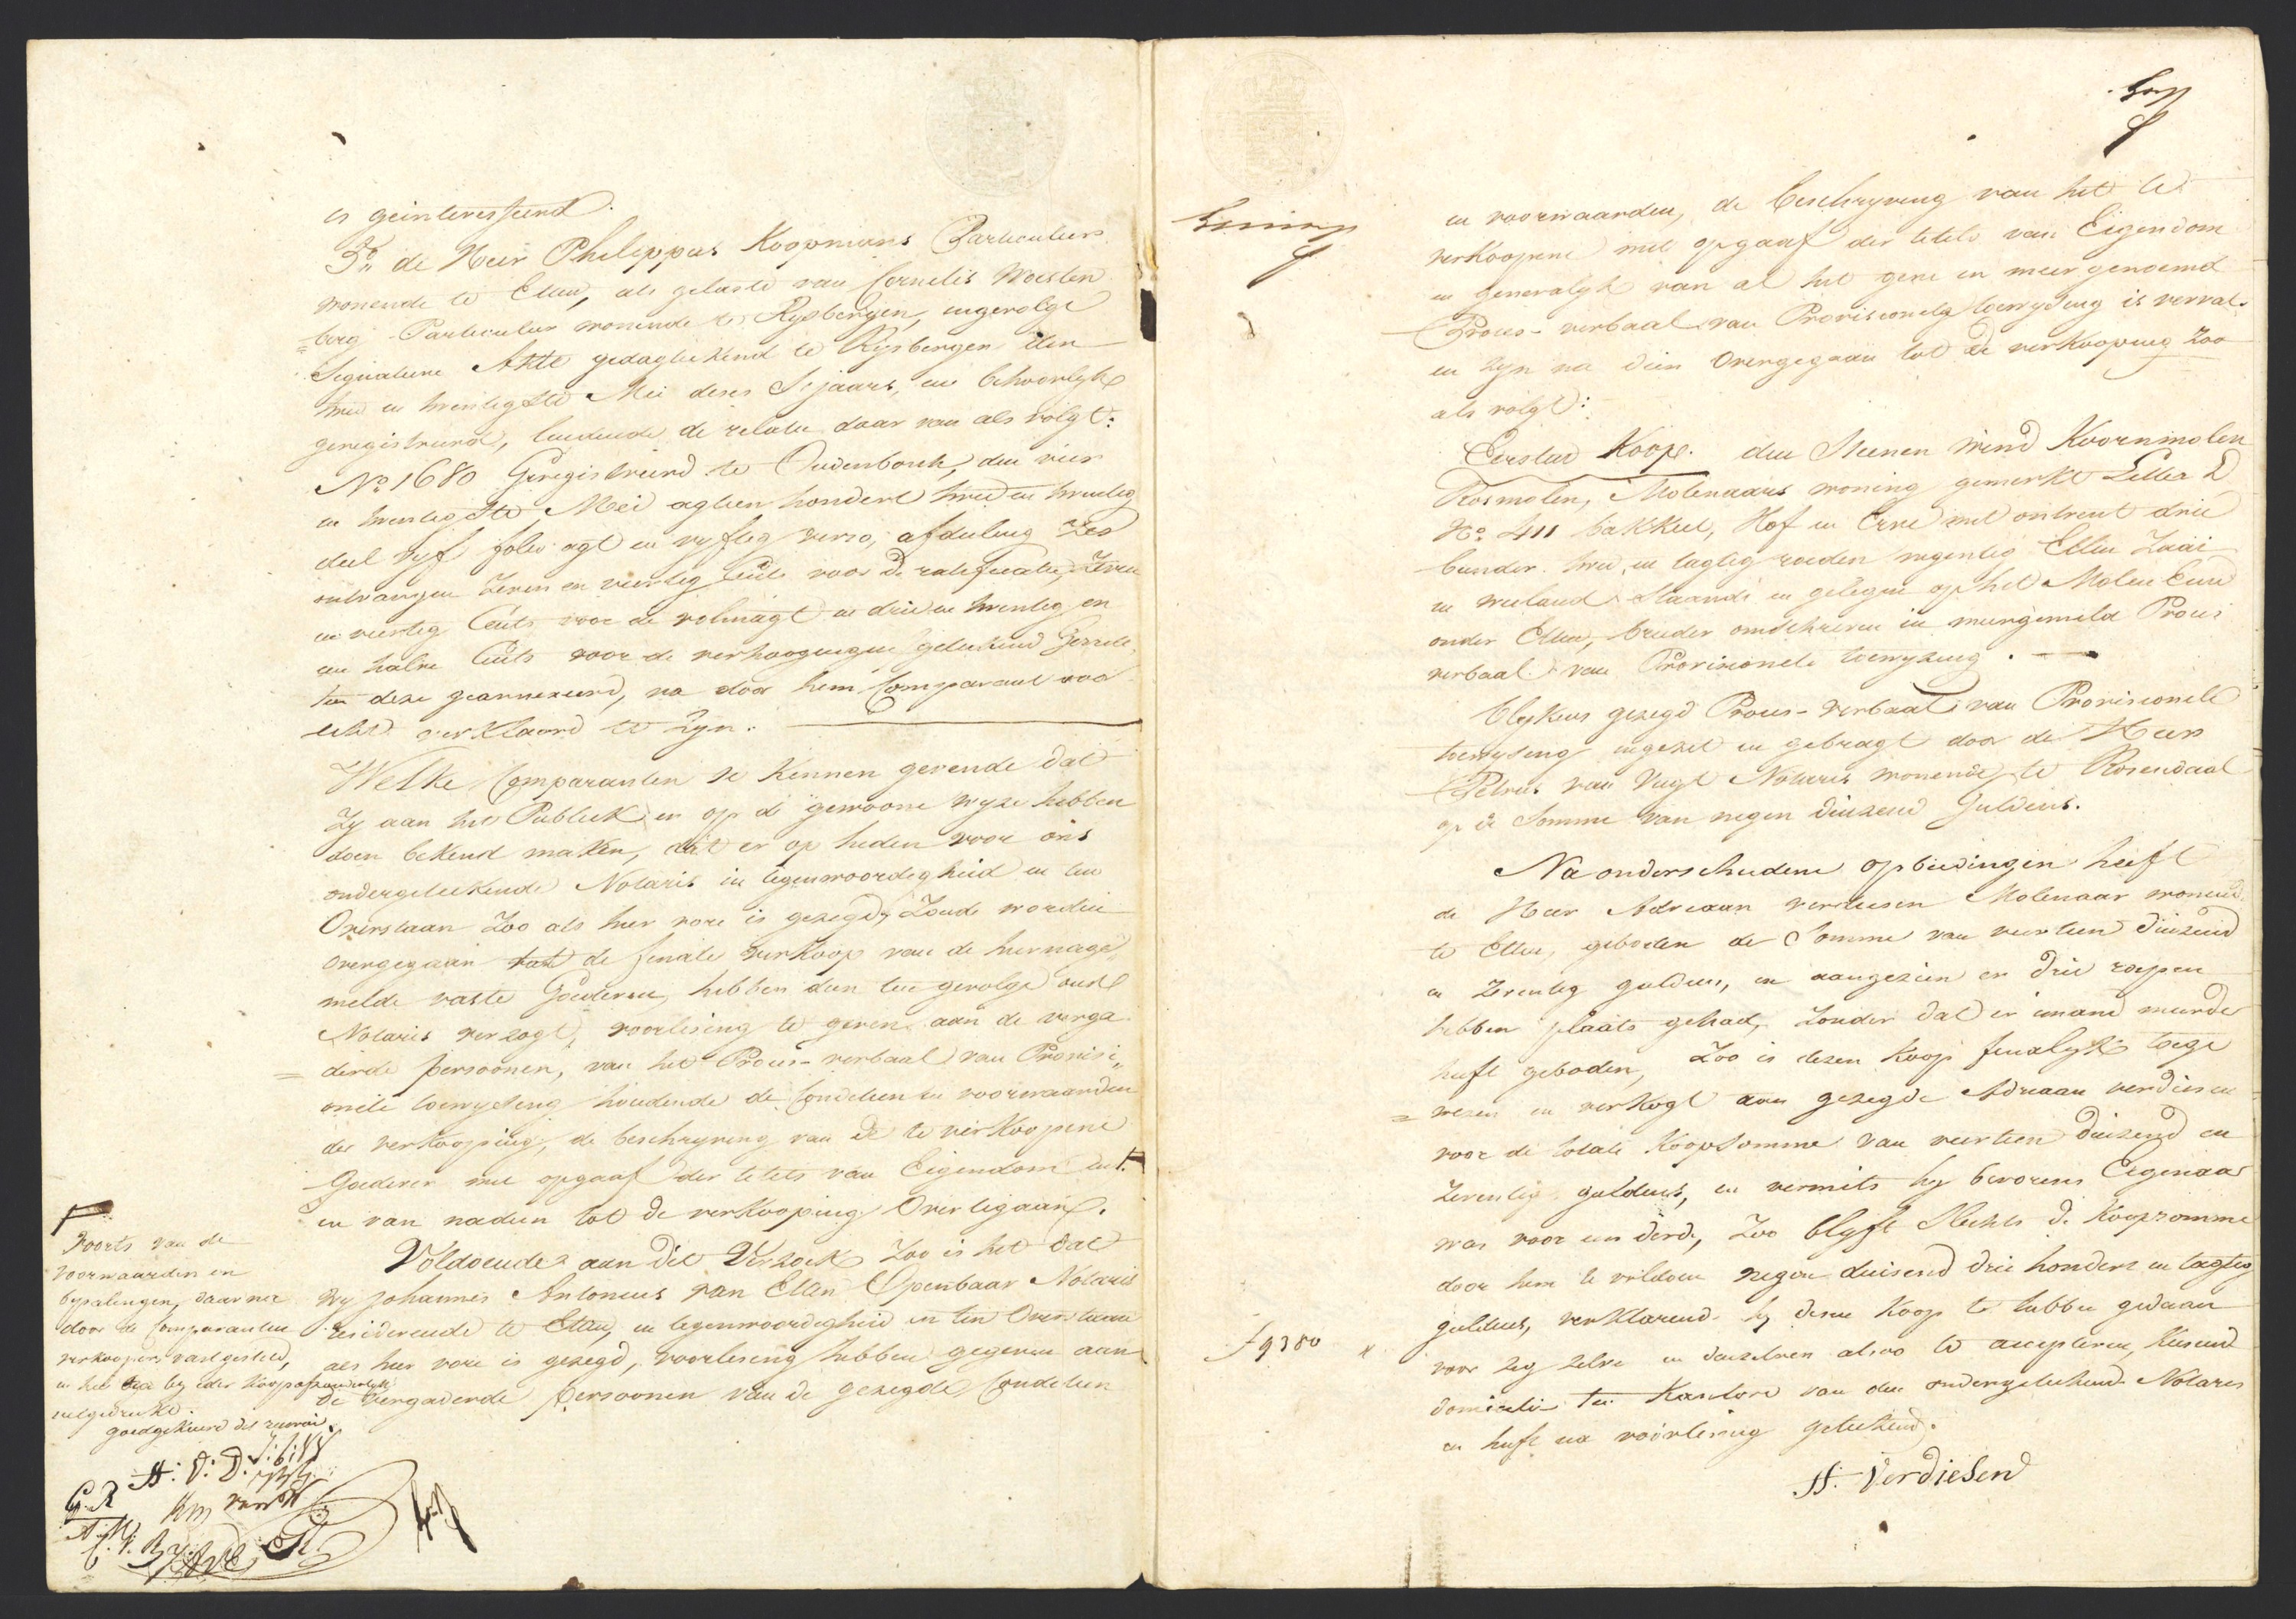 is geinteresseerd.
3e. de Heer Philippus Koopmans Particulier
wonende te Etten, als gelaste van Cornelis Woesten
berg Particulier wonende te Rysbergen, ingevolge
Signature Akte gedagtekend te Rysbergen den
twee en twentigste Mei dezes s'jaars, en behoorlyk
geregistreerd, luidende de relatie daar van als volgt:
No 1680 Geregistreerd te Oudenbosch, den vier
en twentigste Mei agtien honderd twee en twentig
deel vyf folio agt en vyftig verso, afdeeling zes
ontvangen zeven en veertig Cents voor de ratificatie, zeven
en veertig Cents voor de volmagt en drie en twentig en
een halve Cents voor de verhoogingen geteekend
aan deze geannexeerd, na door hem Comparant voor
echt verklaard te zyn.
Welke Comparanten te kennen gevende dat
Zy aan het Publiek en op de gewoone wyze hebben
doen bekend maken, dat er op heden voor ons
ondergeteekende Notaris in tegenwoordigheid en ten
Overstaan Zoo als hier vore is gezegd, Zoude worden
overgegaan tot de finale verkoop van de hiernage
melde vaste Goederen, hebben dien ten gevolge ons
Notaris verzogt, voorlesing te geven aan de verga
derde persoonen, van het Proces-verbaal van Provisi
onele toewyzing houdende de Conditien en voorwaarden
der verkooping, de beschryving van de te verkoopene
Goederen met opgaaf der titels van Eigendom
en van nadien tot de verkooping Over tegaan.
Voldoende aan dit Verzoek Zoo is het dat
Wy Johannes Antonius van Etten Openbaar Notaris
resideerende te Etten, en tegenwoordigheid en ten Overstaan
als hier vore is gezegd, voorlesing hebben gegeven aan
de vergaderde persoonen van de gezegde Conditien
Voorts van de
voorwaarden en
bepalingen, daar na
door de Comparanten
verkoopers vastgesteld,
en het bij ieder koop afzonderlyk
uitgedrukt.
goedgekeurd dit renvoi.
A: V: D.
G. R
en voorwaarden, de beschryving van het te
verkoopene met opgaaf der titels van Eigendom
en generalyk van al het gene in meergenoemd
Proces-verbaal van Provisionele toewyzing is vervat
en zyn na dien overgegaan tot de verkooping zoo
als volgt:
Eersten Koop. den Steenen Wind Koornmolen
Rosmolen, Molenaars woning gemerkt Letter D
No: 411 bakkeet, Hof en Erve met ontrent drie
bunder twee en tagtig roeden negentig Ellen Zaai
en weiland Staande en gelegen op het Molen Eind
onder Etten, breeder omschreven in meergemeld Proces
verbaal van Provisionele toewyzing.
blykens gezegd Proces-verbaal van Provisionele
toewyzing ingezet en gebragt door de Heer
Petrus van Vugt Notaris wonende te Rosendaal
op de Somme van negen duizend Guldens.
Na onderscheidene opbiedingen heeft
de Heer Adriaan verdiesen Molenaar wonend
te Etten, geboden de Somme van veertien duizend
en zeventig guldens, en aangezien er drie roepen
hebben plaats gehad, zonder dat er iemand meerder
heeft geboden, Zoo is dezen Koop finalyk toege
wezen en verkogt aan gezegde Adriaan verdiesen
voor de totale Koopsomme van veertien duizend en
zeventig guldens, en vermits hy bevorens Eigenaar
was voor een derde, Zoo blyft Slechts de Koopsomme
door hem te voldoen negen duisend drie hondert en tagtig
guldens, verklarend hy desen Koop te hebben gedaan
voor zig zelve en denzelven alsoo te accepteren, kiesend
domicilie ten kantore van den ondergeteekend Notaris
en heeft na voorlesing geteekend.
f 9380
A. Verdiesen